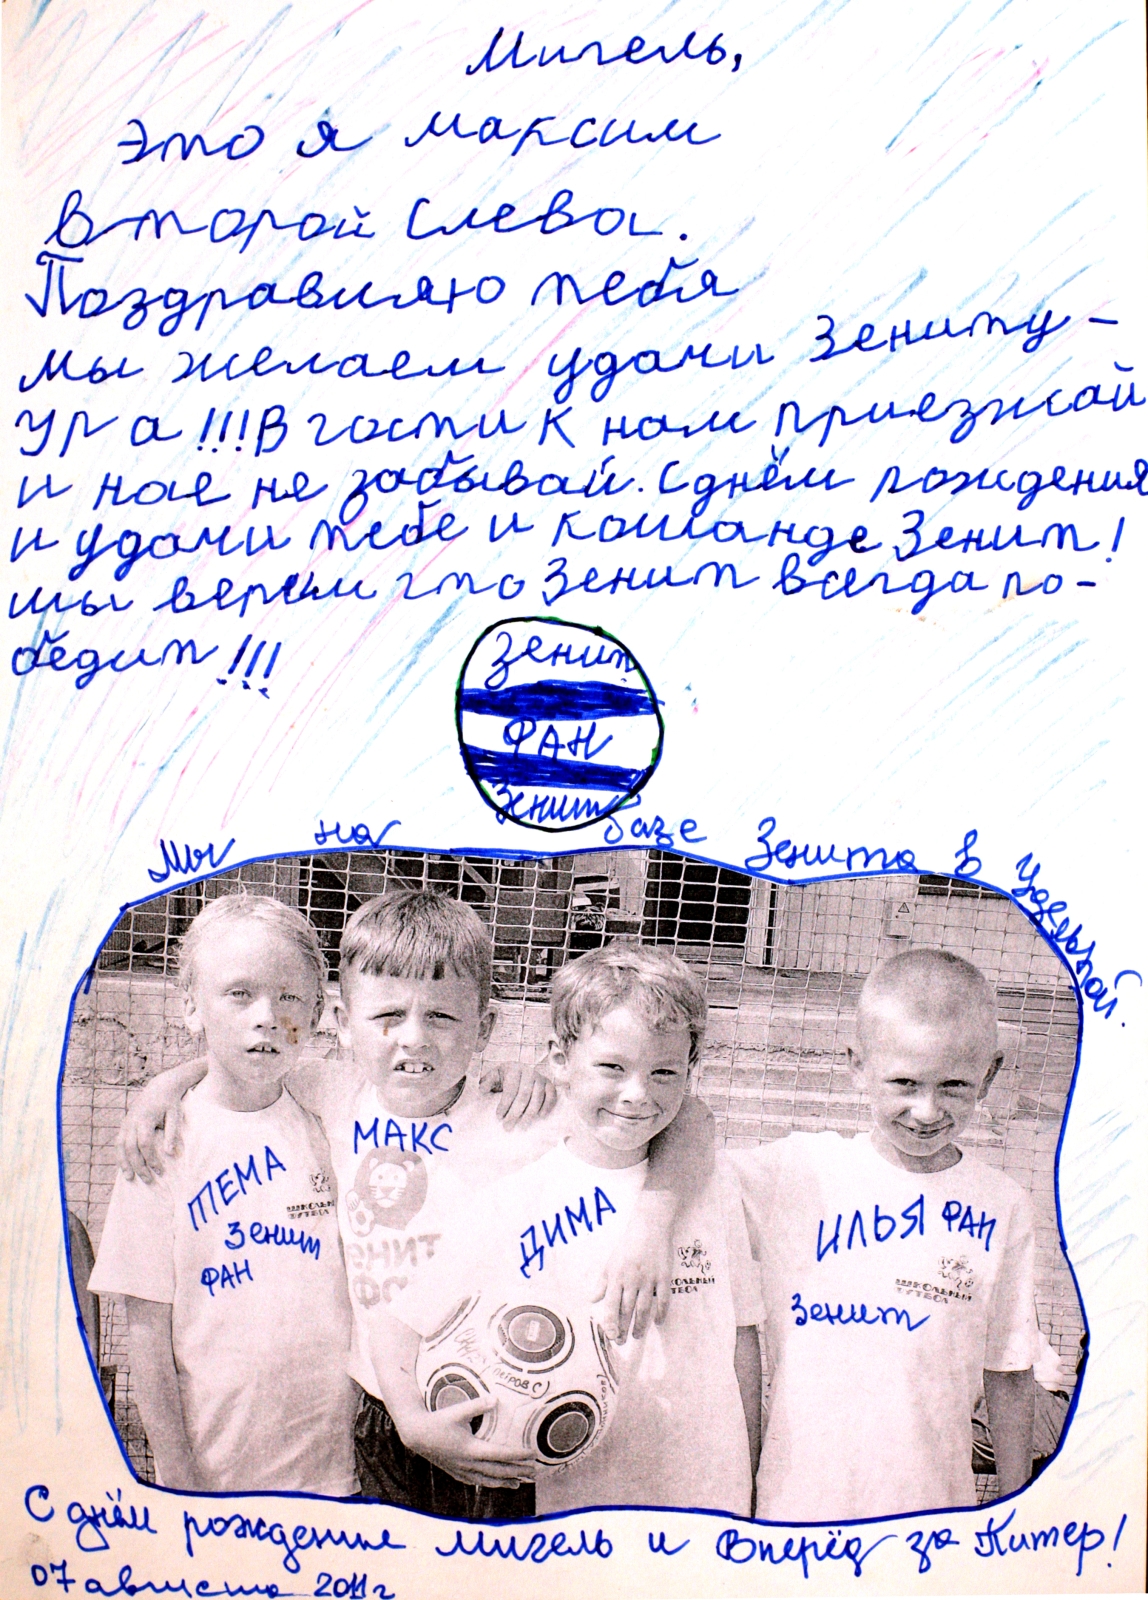 Мигель,
это я Максим
второй слева.
Поздравляю тебя
мы желаем удачи Зениту –
ура!!! В гости к нам приезжай
и нас не забывай. С днём рождения
и удачи тебе и команде Зенит!
мы верим что Зенит всегда по-
бедит!!!
Зенит
ФАН
Зенит
Мы на базе Зенита в Удельной.
МАКС
ТЕМА
Зенит
ФАН
ШКОЛЬНЫЙ
ФУТБОЛ
ЗЕНИТ
ФС
ДИМА
ШКОЛЬНЫЙ
ТБОЛ
ИЛЬЯ ФАН
Зенит
ШКОЛЬНЫЙ
ФУТБОЛ
С днём рождения Мигель и Вперёд за Питер!
07 августа 2011 г